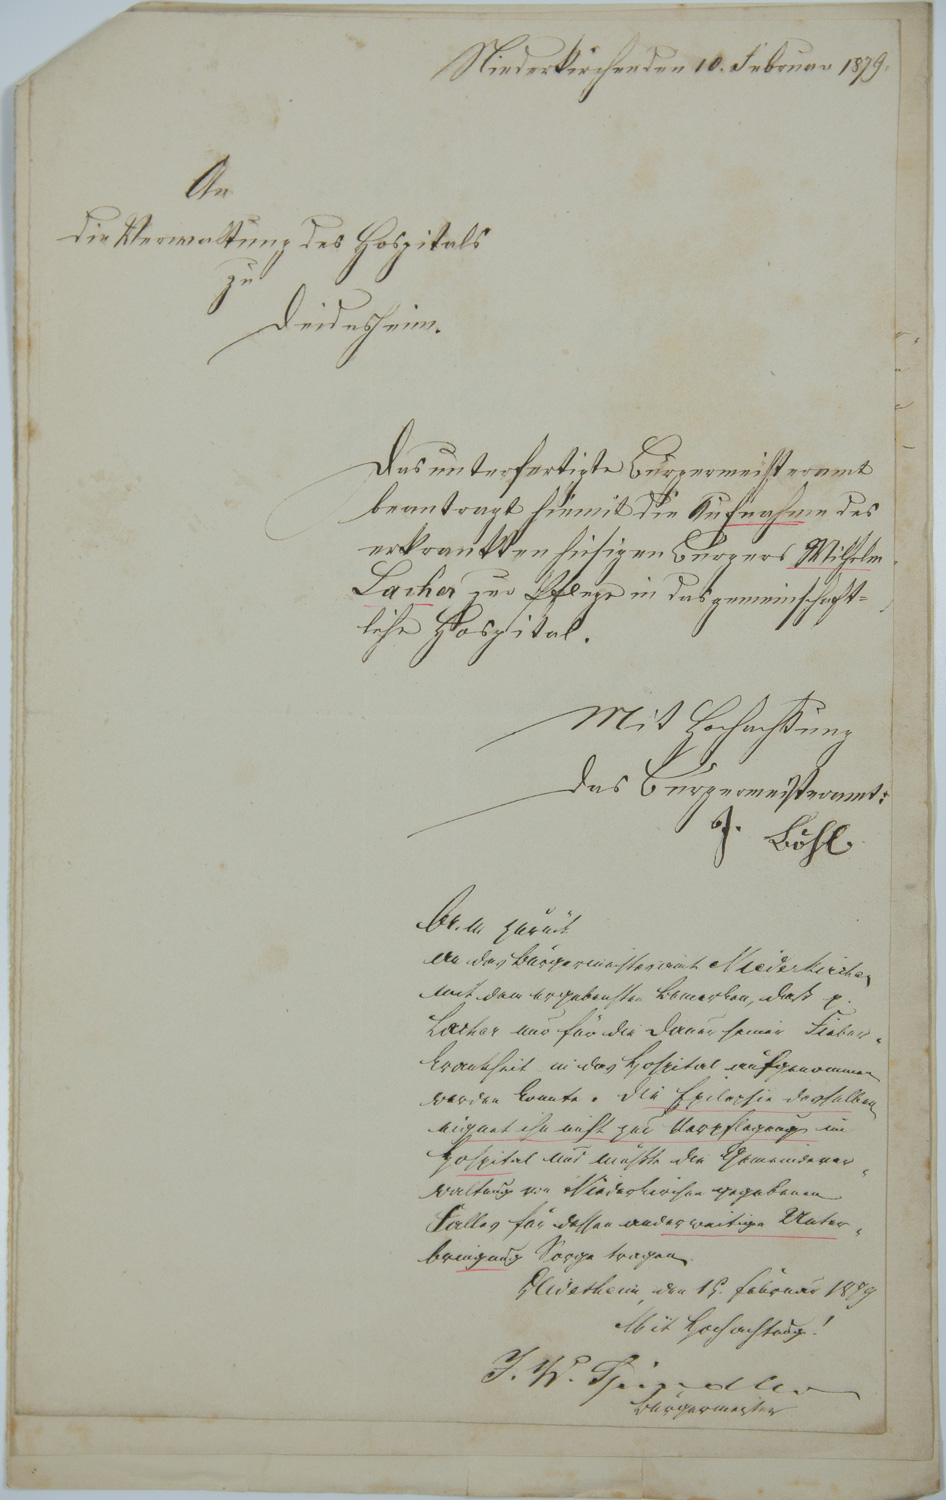 Niederkirchen den 10. Februar 1879.
An
die Verwaltung des Hospitals
zu
Deidesheim.
Das unterfertigte Bürgermeisteramt
beantragt hiemit die Aufnahme des
erkrankten hiesigen Bürgers Wilhelm
Lacher zur Pflege in das gemeinschaft=
liche Hospital.
Mit Hochachtung
das Bürgermeisteramt:
Böhl
Br. m. zurück
an das Bürgermeisteramt Niederkirchen
mit dem ergebensten Bemerken, daß p.
Lacher nur für die Dauer seiner Fieber-
krankheit in das Hospital aufgenommen
werden konnte. Die Epilepsie desselben
eignet ihn nicht zur Verpflegung im
Hospital und müßte die Gemeindever-
waltung von Niederkirchen gegebenen
Falles für dessen anderweitige Unter-
bringung Sorge tragen
Deidesheim, den 15. Februar 1879
Mit Hochachtung!
Bürgermeister